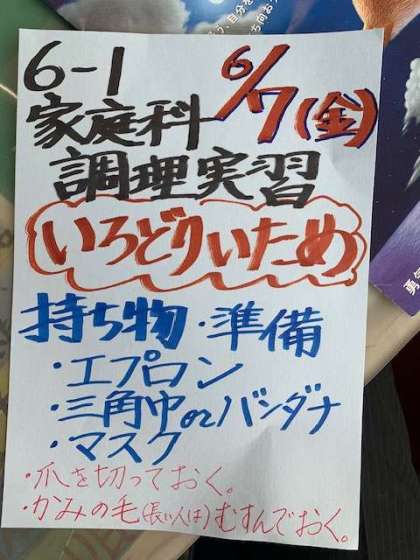 6-1 6/7(金)
家庭科
調理実習
いろどりいため
持ち物・準備
・エプロン
・三角巾orバンダナ
・マスク
・爪を切っておく。
・かみの毛(長い人は)むすんでおく。
勇気